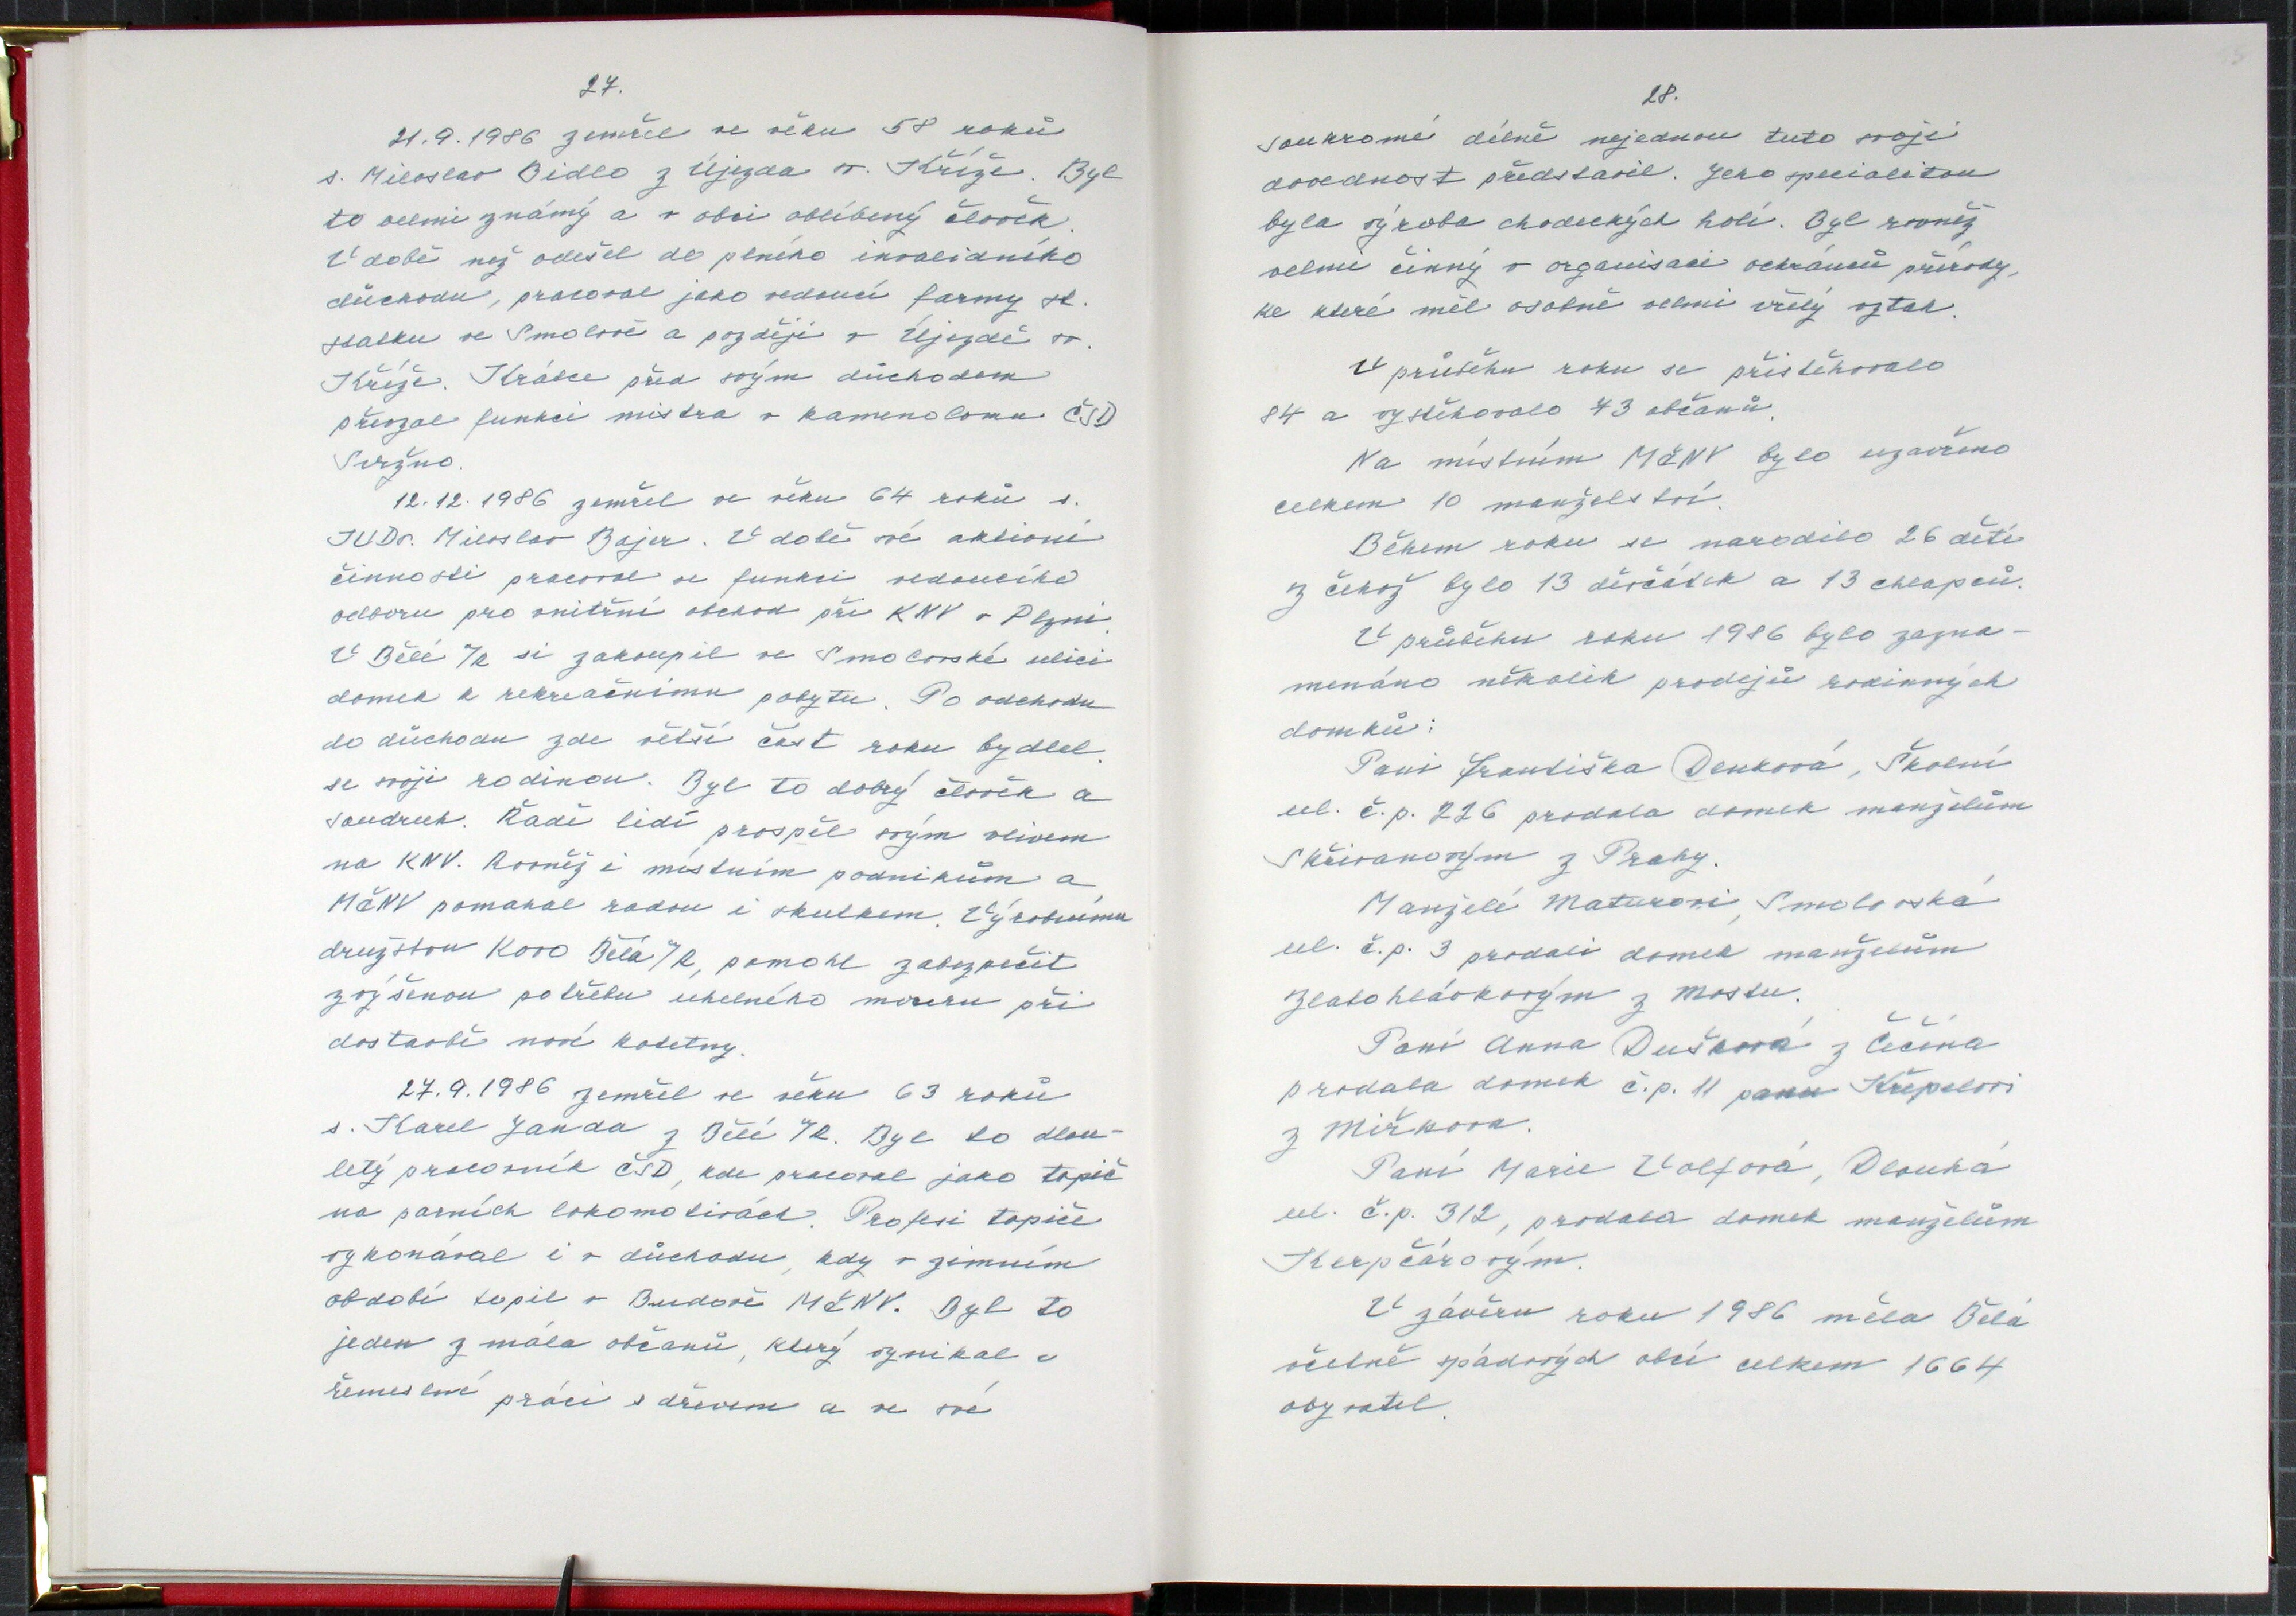 27.
21.9.1986 zemřel ve věku 58 roků
s. Miloslav Bidlo z Újezda sv. Kříže. Byl
to velmi známý a v obci oblíbený člověk.
V době než odešel do plného invalidního
důchodu, pracoval jako vedoucí farmy st.
statku ve Smolově a později v Újezdě sv.
Kříže. Krátce před svým důchodem
převzal funkci mistra v kamenolomu ČSD
Svržno.
12.12.1986 zemřel ve věku 64 roků s.
JUDr. Miloslav Bajer. V době své aktivní
činnosti pracoval ve funkci vedoucího
odboru pro vnitřní obchod při KNV v Plzni.
V Bělé n/R si zakoupil ve Smolovské ulici
domek k rekreačnímu pobytu. Po odchodu
do důchodu zde větší část roku bydlel
se svojí rodinou. Byl to dobrý člověk a
soudruh. Řadě lidí prospěl svým vlivem
na KNV. Rovněž i místním podnikům a
MěNV pomáhal radou i skutkem. Výrobnímu
družstvu Kovo Bělá n/R, pomohl zabezpečit
zvýšenou potřebu uhelného mouru při
dostavbě nové kotelny.
27.9.1986 zemřel ve věku 63 roků
s. Karel Janda z Bělé n/R. Byl to dlou-
letý pracovník ČSD, kde pracoval jako topič
na parních lokomotivách. Profesi topiče
vykonával i v důchodu, kdy v zimním
období topil v Budově MěNV. Byl to
jeden z mála občanů, který vynikal v
řemeslné práci s dřevem a ve své
28.
soukromé dílně nejednou tuto svoji
dovednost představil. Jeho specialitou
byla výroba chodeckých holí. Byl rovněž
velmi činný v organisaci ochránců přírody,
ke které měl osobně velmi vřelý vztah.
V průběhu roku se přistěhovalo
84 a vystěhovalo 43 občanů.
Na místním MěNV bylo uzavřeno
celkem 10 manželství.
Během roku se narodilo 26 dětí
z čehož bylo 13 děvčátek a 13 chlapců.
V průběhu roku 1986 bylo zazna-
menáno několik prodejů rodinných
domků:
Paní Františka Denková, Školní
ul. č.p. 226 prodala domek manželům
Skřivanovým z Prahy.
Manželé Maturovi, Smolovská
ul. č.p. 3 prodali domek manželům
Zlatohlávkovým z Mostu.
Paní Anna Dušková z Čečína
prodala domek č.p. 11 panu Křepelovi
z Mířkova.
Paní Marie Volfová, Dlouhá
ul. č.p. 312, prodala domek manželům
Kerpčárovým.
V závěru roku 1986 měla Bělá
včetně spádových obcí celkem 1664
obyvatel.